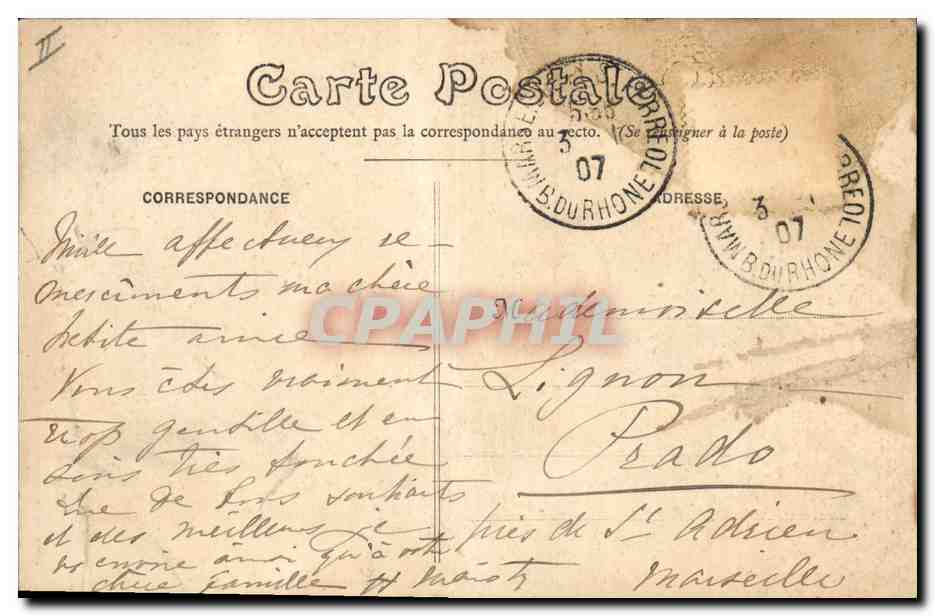 II
Carte Postale
Tous les pays étrangers n'acceptent pas la correspondance au recto. (Se renseigner à la poste)
CORRESPONDANCE
ADRESSE
3
07
B. DU RHONE
3
07
B. DU RHONE
CPAPHIL
Mille affectueux re-
merciments ma chère
petite amie
Vous êtes vraiment
trop gentille et en
suis très touchée
que de bons souhaits
et des meilleurs je
envoie ainsi qu'à votre
chère famille
Mademoiselle
Lignon
Prado
près de St Adrien
Marseille